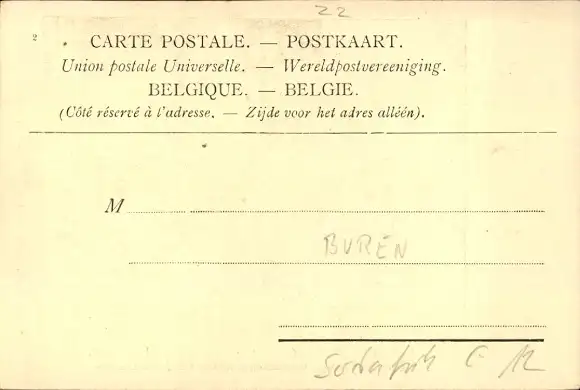 22
2
CARTE POSTALE. — POSTKAART.
Union postale Universelle. — Wereldpostvereeniging.
BELGIQUE. — BELGIE.
(Côté réservé à l'adresse. — Zijde voor het adres alléén).
M
BUREN